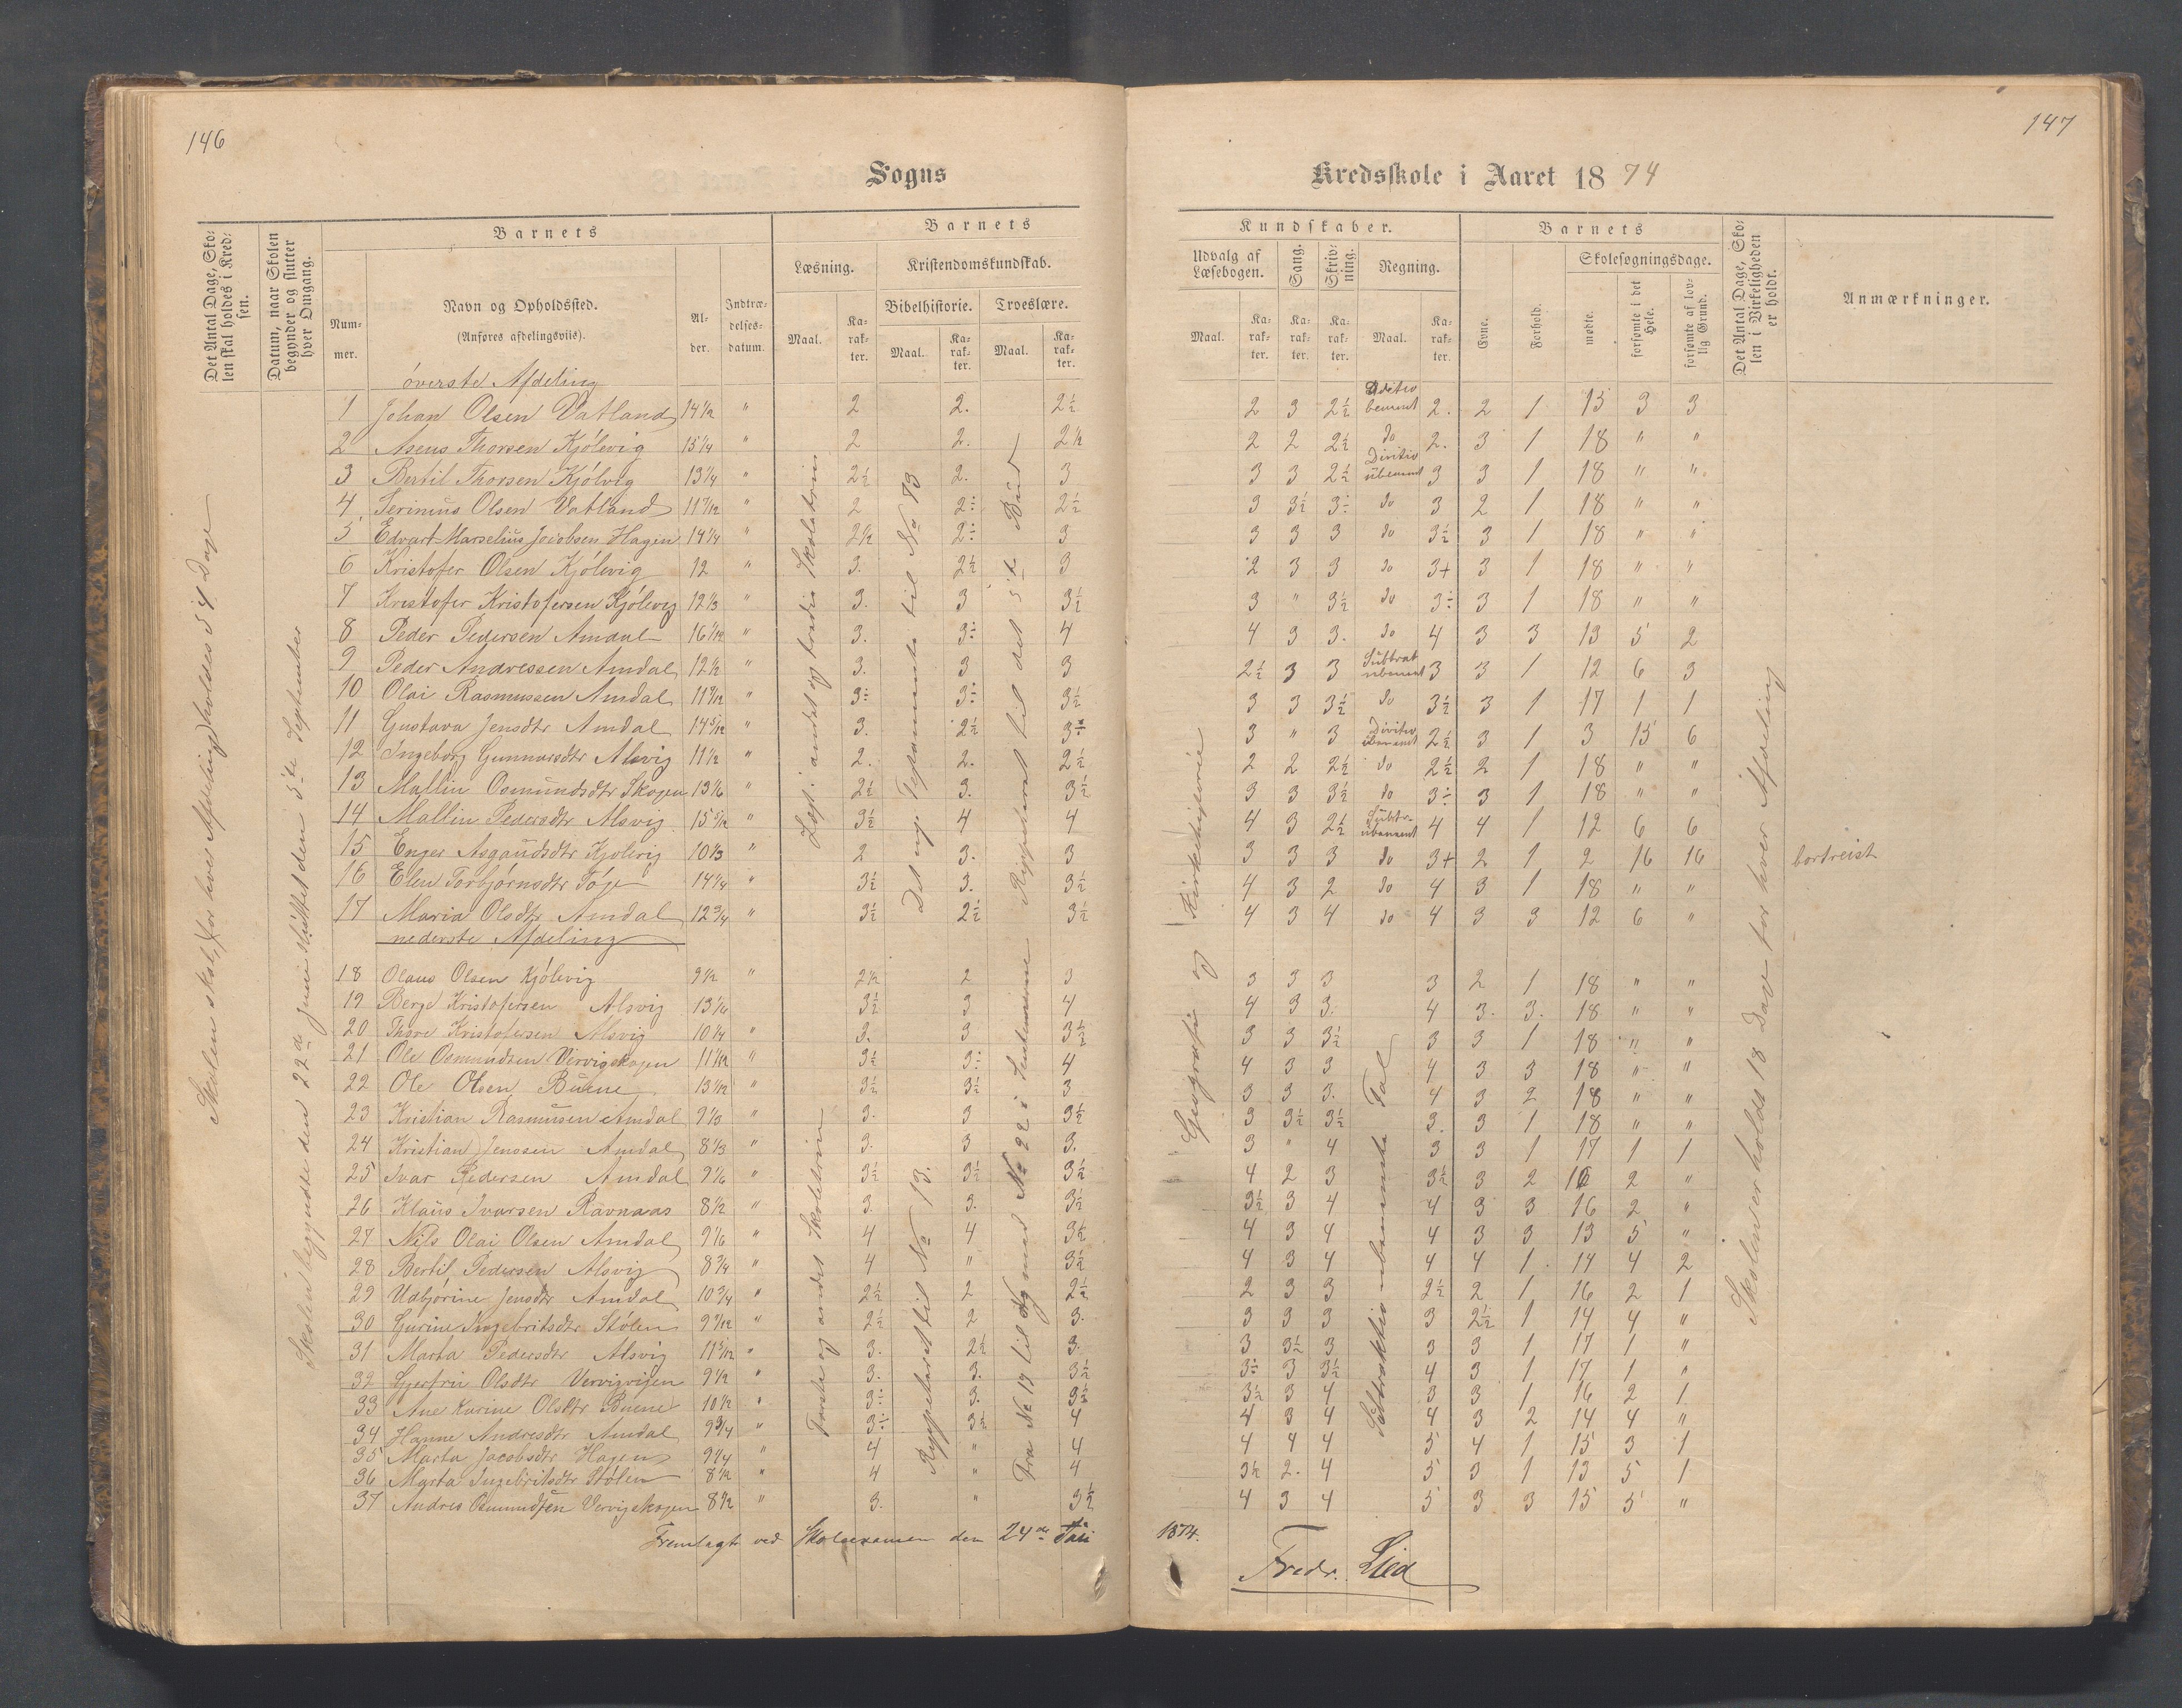 146
147
Sogns
Kredsskole i Aaret 1874
Det Antal Dage, Skolen skal holdes i Kredsen.
Datum, naar Skolen begynder og slutter hver Omgang.
Barnets
Nummer.
Navn og Opholdssted.
(Anføres afdelingsviis).
Alder.
Indtrædelsesdatum.
Barnets
Læsning.
Kristendomskundskab.
Bibelhistorie.
Troeslære.
Maal.
Karakter.
Maal.
Karakter.
Maal.
Karakter.
Kundskaber.
Udvalg af Læsebogen.
Sang.
Skrivning.
Regning.
Maal.
Karakter.
Karakter.
Karakter.
Maal.
Karakter.
Barnets
Evne.
Forhold.
Skolesøgningsdage.
mødte.
forsømte i det Hele.
forsømte af lovlig Grund.
Det Antal Dage, Skolen i Virkeligheden er holdt.
Anmærkninger.
øverste Afdeling
1 Johan Olsen Vatland 14 1/2 " 2 2. 2½ 2 3 2½ 2. 2 1 15 3 3
2 Asens Thorsen Kjölevig 15 1/4 " 2 2. 2½ 2 2 2½ do 2. 3 1 18 " "
3 Bertil Thorsen Kjölvig 13 1/4 " 2½ 2. 3 3 3 2½ Divitio ubenævnt 3 3 1 18 " "
4 Serinius Olsen Vatland 11 7/12 " 2 2÷ 2½ 3 3½ 3÷ do 3 2 1 18 " "
5 Edvart Marselius Jacobsen Hagen 14 1/4 " 2½ 2÷ 3 3 3 3 do 3½ 3 1 18 " "
6 Kristofer Olsen Kjölevig 12 " 3. 2½ 3 2 3 3 do 3+ 3 1 18 " "
7 Kristofer Kristofersen Kjölevig 12 1/3 " 3. 3 3½ 3 " 3½ do 3÷ 3 1 18 " "
8 Peder Pedersen Amdal 16 1/12 " 3. 3÷ 4 4 3 3. do 4 3 3 13 5 2
9 Peder Andressen Amdal 12 1/2 " 3. 3 3 2½ 3 3 Subtrak ubenævnt 3 3 1 12 6 3
10 Olai Rasmussen Amdal 11 9/12 " 3÷ 3÷ 3½ 3 3 3½ do 3½ 3 1 17 1 1
11 Gustava Jensdtr Amdal 14 5/12 " 3. 2½ 3÷ 3 " 3 Divitio ubenævnt 2½ 3 1 3 15 6
12 Ingeborg Gunnarsdtr Alsvig 11 1/2 " 2. 2. 2½ 2 2 2½ do 2½ 2 1 18 " "
13 Mallin Osmundsdtr Skogen 13 1/6 " 2½ 3. 3½ 3 3 3½ do 3÷ 3 1 18 " "
14 Mallin Pedersdtr Alsvig 15 5/12 " 3½ 4 4 4 3 2½ Subtr. ubenævnt 4 4 1 12 6 6
15 Enger Asgaudsdtr Kjölevig 10 1/3 " 2 3. 3 3 3 3 do 3+ 2 1 2 16 16 bortreist
16 Elen Torbjörnsdtr Töge 14 1/4 " 3½ 3. 3½ 4 3 2 do 4 3 1 18 " "
17 Maria Olsdtr Amdal 12 3/4 " 3½ 2½ 3½ 4 3 4 do 4 3 3 12 6 "
nederste Afdeling
18 Olaus Olsen Kjölevig 9 1/2 " 2½ 2 3 3 3 3 3 2 1 18 " "
19 Berge Kristofersen Alsvig 13 1/6 3½ 3 4 4 3 3. 4 3. 3. 18 " "
20 Thore Kristofersen Alsvig 10 1/4 " 3. 3 3½ 3 3 3½ 3 3 1 18 " "
21 Ole Osmundsen Vervigskogen 11 1/12 " 3½ 3÷ 4 4 3 3 4 3 3 18 " "
22 Ole Olsen Buene 13 1/12 " 3½ 3½ 3 3 3 3. 4 3 2 18 " "
23 Kristian Rasmussen Amdal 9 1/3 " 3. 3 3½ 3 3½ 3½ 3. 3 1 18 " "
24 Kristian Jenssen Amdal 8 1/3 " 3. 3 3. 3 " 4 3 3 1 17 1 1
25 Ivar Pedersen Amdal 9 1/6 " 3½ 3½ 3½ 4 2 3 3½ 3 2 16 2 "
26 Klaus Ivarsen Ravnaas 8 1/2 " 3. 3. 3½ 3½ 3 4 4 3 3 16 2 "
27 Nils Olai Olsen Amdal 9 1/6 " 4 4 3½ 4 3 4 4 3 3 13 5 "
28 Bertil Pedersen Alsvig 8 3/4 " 4 " 3½ 4 3 4 4 4 1 14 4 2
29 Udbjörine Jensdtr Amdal 10 3/4 " 2½ 2 2½ 2 3 3 2½ 2 1 16 2 1
30 Gurine Ingebritsdtr Stölen 9 7/12 " 2½ 2 3. 3 3 3 3 2½ 1 14 4 "
31 Marta Pedersdtr Alsvig 11 5/12 " 3. 2½ 3. 3 3½ 3 3 3 1 17 1 "
32 Gjertrü Olsdtr Vervigvigen 9 1/2 " 3. 3. 3½ 3÷ 3 3½ 4 3 1 17 1 "
33 Ane Karine Olsdtr Buene 10 1/2 " 3÷ 3. 3½ 3½ 3 4 3 3 1 16 2 1
34 Hanne Andresdtr Amdal 9 3/4 " 3÷ 3½ 4 4 3 4 4 3 2 14 4 "
35 Marta Jacobsdtr Hagen 9 1/4 " 4 " 4 4 4 4 5 4 1 15 3 1
36 Marta Ingebritsdtr Stölen 8 1/12 " 4 " 4 3½ 2. 4 5 3 1 13 5 1
37 Andres Osmundsen Vervigskogen 8 1/2 " 3. " 3½ 4 3 4 5 3 3 15 5 "
Skolen skal, for hver Afdeling, holdes i 54 Dage
Skolen begyndte den 22de Juni sluttet den 5te September
Læst i andet og tredie Skoletrin
Det nye Testamente til No 73
Repeteret til det 5te Bud
Første og andet Skoletrin
Repeteret til No 13.
Fra No 17 til og med No 22 i Sententserne
Geografi og Kirkehistorie
Subtraktio ubenævnte Tal
Skolen er holdt 18 Dage for hver Afdeling
Fremlagt ved Skoleexamen den 24de Juli 1874.
Fredr. Lied